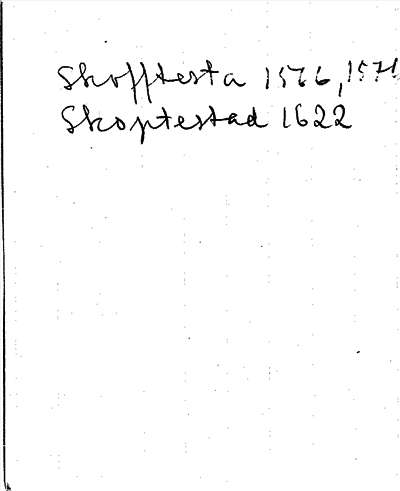 Skofftesta 1566, 1571
Skoptestad 1622